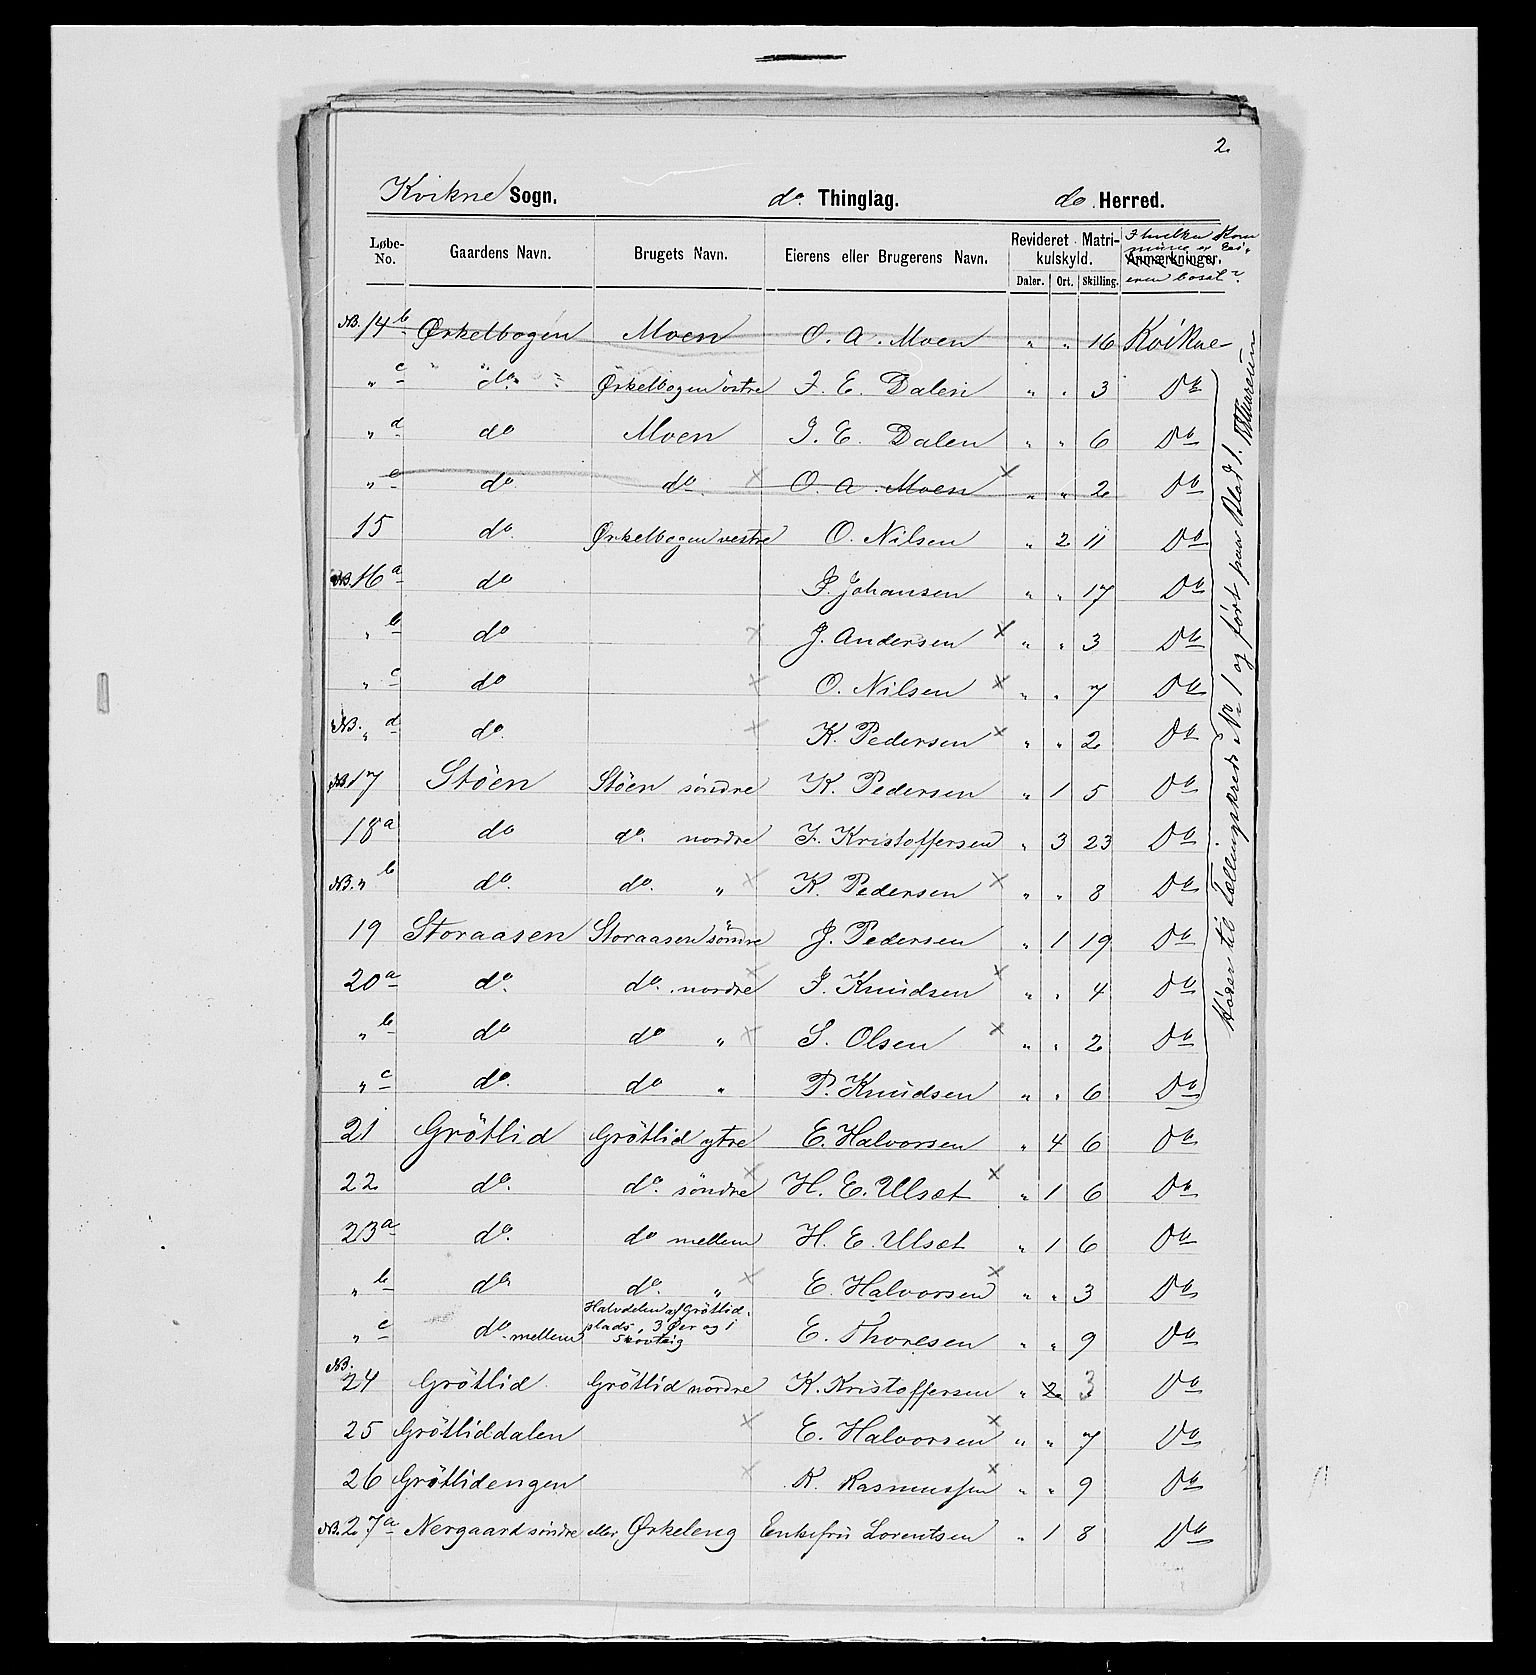 2.
Kvikne Sogn. do. Thinglag. do. Herred.
Løbe-No. Gaardens Navn. Brugets Navn. Eierens eller Brugerens Navn. Revideret Matrikulskyld. Daler. Ort. Skilling. Anmærkninger. I hvilken Kommune er Eieren bosat?
NB. 14 b Ørkelbogen Moen O. A. Moen " " 16 Kvikne
" c do Ørkelbogen østre J. E. Dalen " " 3 Do
" d do Moen J. E. Dalen " " 6 Do
" e do. do. × O. A. Moen × " " 2 Do
15 do. Ørkelbogen vestre O. Nilsen " 2 11 Do
NB. 16 a do J. Johansen " " 17 Do
" b do × J. Andersen × " " 3 Do
" c do × O. Nilsen × " " 7 Do
NB. " d do. × K. Pedersen × " " 2 Do
NB 17 Stöen Stöen söndre K. Pedersen " 1 5 Do
18 a do do. nordre J. Kristoffersen " 3 23 Do
NB. " b do. do. " × K. Pedersen × " " 8 Do
19 Storaasen Storaasen söndre J. Pedersen " 1 19 Do
20 a do. do. nordre × J. Knudsen × " " 4 Do
" b do do " × S. Olsen × " " 2 Do
" c do. do " P. Knudsen " " 6 Do
21 Grötlid Grötlid ytre E. Halvorsen " 4 6 Do
22 do. do. söndre × H. E. Ulset × " 1 6 Do
23 a do. do mellem H. E. Ulset " 1 6 Do
" b do do. " × E. Halvorsen × " " 3 Do
" c do. mellem Halvdelen af Grötlidplads, 3 Øer og 1 Skovteig E. Thoresen " " 9 Do
NB. 24 Grötlid Grötlid nordre K. Kristoffersen " 2 3 Do
25 Grötliddalen × E. Halvorsen × " " 7 Do
26 Grötlidengen × K. Rasmussen × " " 9 Do
NB. 27 a Nergaard söndre eller Ørkeleng Enkefru Lorentsen " 1 8 Do
Hører til Tællingskreds No 1 og ført paa Blad 1.